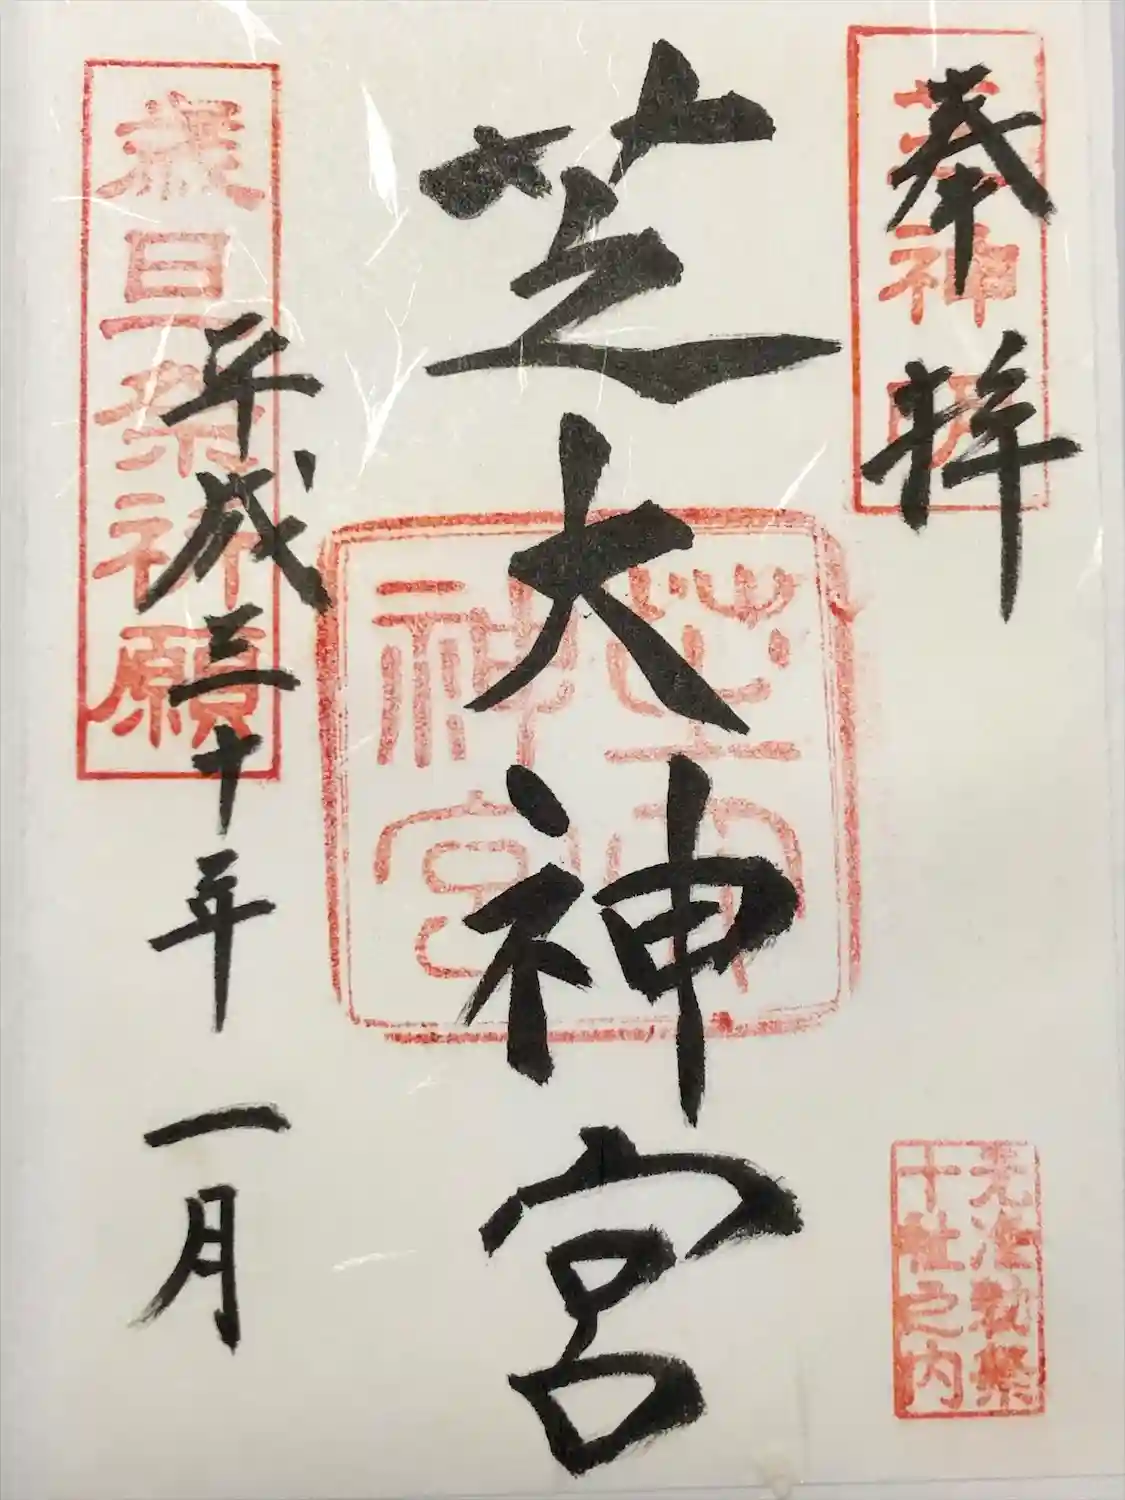 奉拝
芝神明
芝大神宮
芝大
神宮
元准勅祭
十社之内
平成三十年一月
歳旦祭祈願